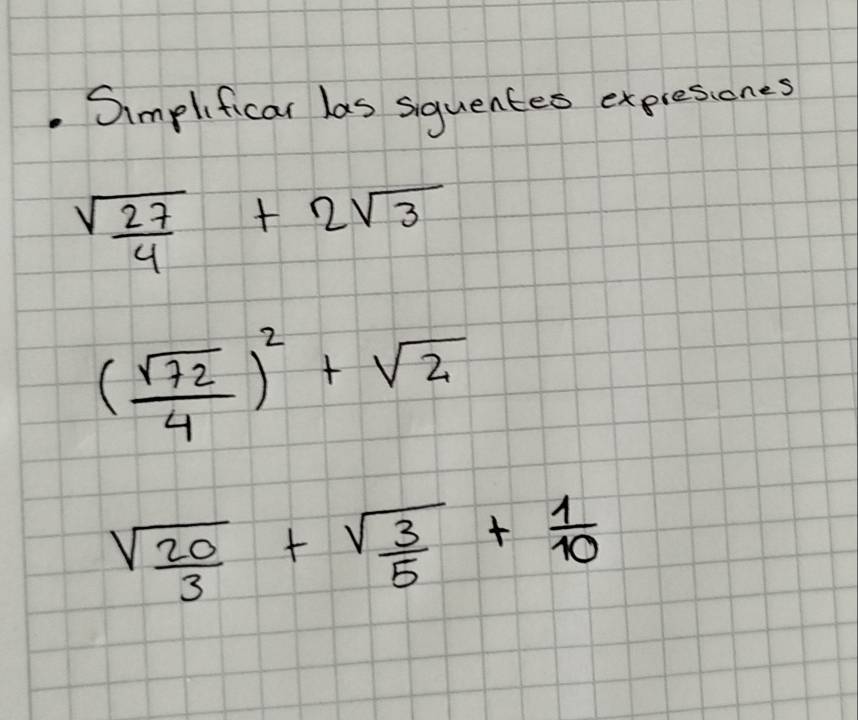 . Simplificar las siguentes expresiones
√(27/4) + 2√3
(√72/4)² + √2
√(20/3) + √(3/5) + 1/10